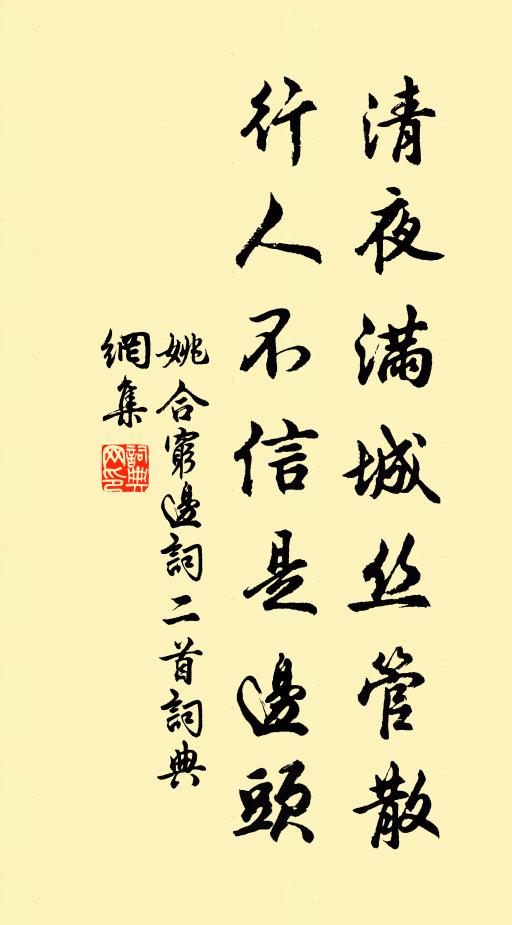 清夜满城丝管散
行人不信是邊頭
姚合窮邊詞二首詞典
網集
詞典
网印